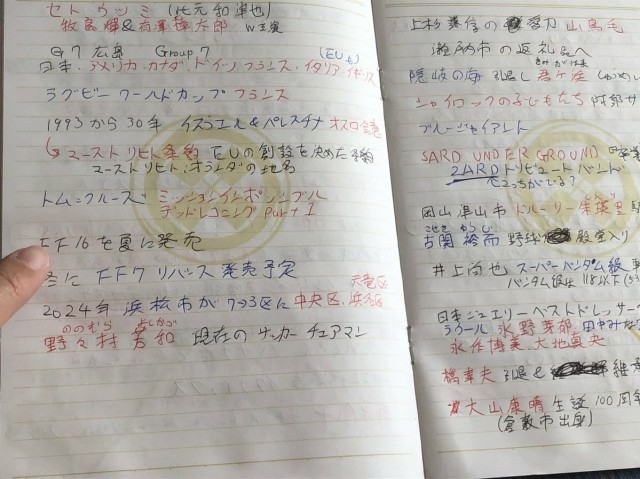 セトウツミ (此元和津也)
牧島 輝&有澤樟太郎 W主演
G7 広島 Group 7
(EUも)
日本・アメリカ・カナダ・ドイツ・フランス・イタリア・イギリス
ラグビー ワールドカップ フランス
1993から30年 イスラエル&パレスチナ オスロ合意
マーストリヒト条約 EUの創設を決めた条約
マーストリヒト:オランダの地名
トム・クルーズ ミッションインポッシブル
デッドレコニング Part 1
FF16を夏に発売
冬に FF7 リバース 発売予定
天竜区
2024年 浜松市が7→3区に 中央区、浜名区
ののむら よしかず
野々村 芳和 現在の サッカー チェアマン
上杉謙信の 愛刀 山鳥毛
瀬戸内市の返礼品へ
きみがはま
隠岐の海 引退し 君ヶ濱
シャイロックの子供たち 阿部サ
ブルージャイアント
SARD UNDERGROUND
ZARD トリビュートバンド
岡山 津山市
こせき ゆうじ
古関 裕而 野球 殿堂入り
井上尚也 スーパーバンタム級
バンタム級は 118以下
日本ジュエリーベストドレッサー
ラウール 永野芽郁 田中みな
永作博美 大地真央
橋幸夫 引退を
大山康晴 生誕 100周年
(倉敷市出身)